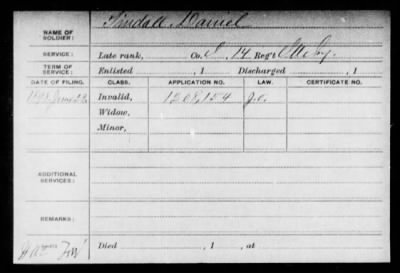 Tindall, Daniel
NAME OF SOLDIER:
SERVICE: Late rank, Co. 14 Reg't Cav
TERM OF SERVICE: Enlisted , 1 Discharged , 1
DATE OF FILING. CLASS. APPLICATION NO. LAW. CERTIFICATE NO.
1898 June 22 Invalid, 1208,154 J.o.
Widow,
Minor,
ADDITIONAL SERVICES:
REMARKS:
Died , 1 , at